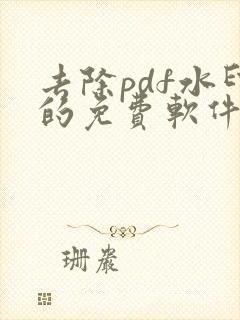 去除pdf水印
的免費軟件
珊嚴